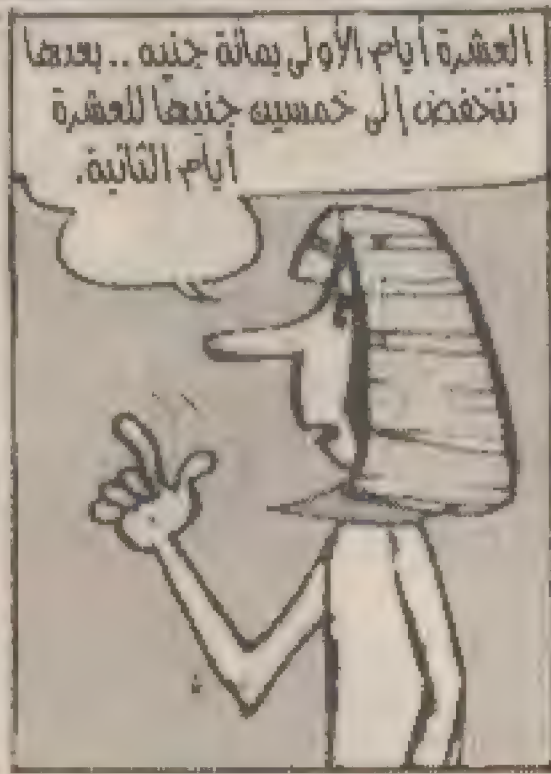 العشرة أيام الأولى بمائة جنيه .. بعدها
تنخفض إلى خمسين جنيها للعشرة
أيام الثانية.